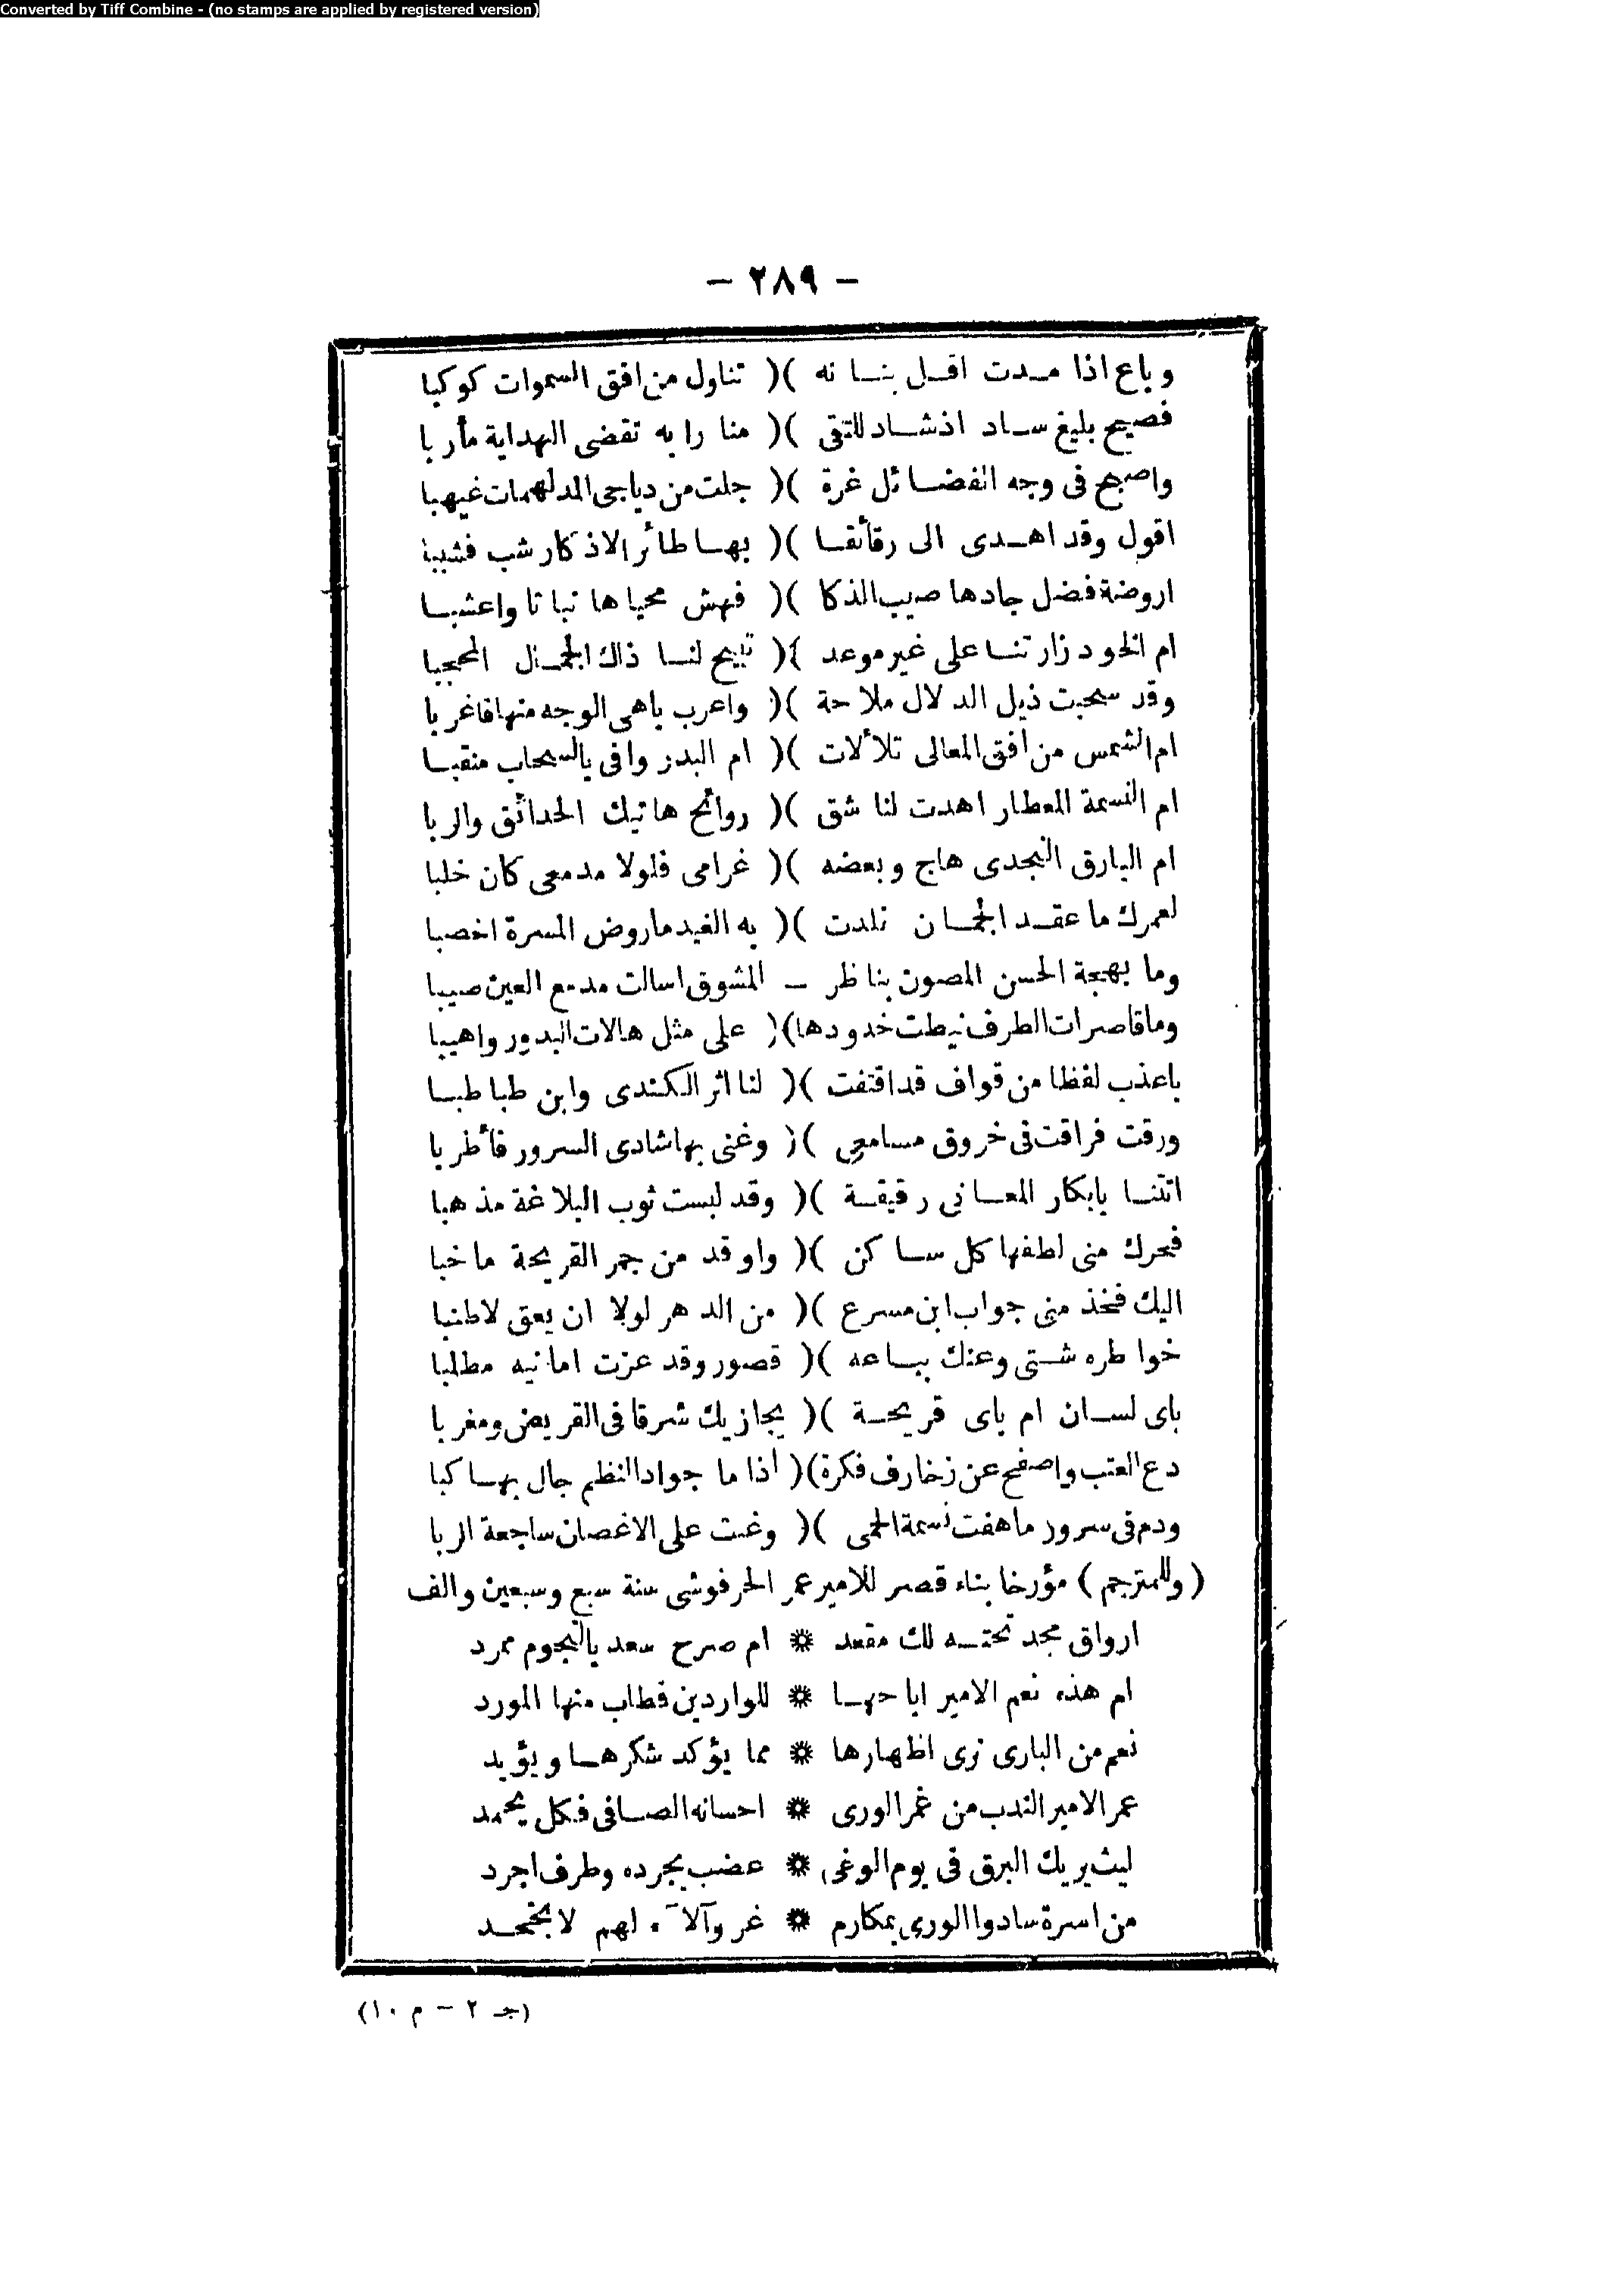 Converted by Tiff Combine - (no stamps are applied by registered version)
— ٢٨٩ —
وباع اذا مدت اقل بنانه )( تناول من افق السموات كوكبا
فصيح بليغ ساد اذ شاد للتقى )( منارا به تقضى الهداية مأربا
واصبح فى وجه الفضائل غرة )( جلت من دياجى المدلهمات غيهبا
اقول وقد اهدى الى رقائقا )( بها طائر الاذكار شب فشببا
اروضة فضل جادها صيب الذكا )( فهش محياها نباتا واعشبا
ام الخود زارتنا على غير موعد )( تبيح لنا ذاك الجمال المحجبا
وقد سحبت ذيل الدلال ملاحة )( واعرب باهى الوجه منها فاغربا
ام الشمس من افق المعالى تلألات )( ام البدر وافى بالسحاب منقبا
ام النسمة المعطار اهدت لنا شق )( روائح هاتيك الحدائق والربا
ام البارق النجدى هاج وبعضه )( غرامى فلولا مدمعى كان خلبا
لعمرك ما عقد الجمان تلدت )( به الغيد ما روض المسرة اخصبا
وما بهجة الحسن المصون بناظر — المشوق اسالت مدمع العين صيبا
وما قاصرات الطرف نيطت خدودها )( على مثل هالات البدور واهيبا
باعذب لفظا من قواف قد اقتفت )( لنا اثر الكندى وابن طباطبا
ورقت فراقت فى خروق مسامعى )( وغنى بها شادى السرور فأطربا
اتتنا بابكار المعانى رقيقة )( وقد لبست ثوب البلاغة مذهبا
فحرك منى لطفها كل ساكن )( واوقد من جمر القريحة ما خبا
اليك فخذ منى جواب ابن مسرع )( من الدهر لولا ان يعق لاطنبا
خواطره شتى وعنك بباعه )( قصور وقد عزت امانيه مطلبا
باى لسان ام باى قريحة )( يجازيك شرقا فى القريض ومغربا
دع العتب واصفح عن زخارف فكرة )( اذا ما جواد النظم جال بها كبا
ودم فى سرور ما هفت نسمة الحمى )( وغنت على الاغصان ساجعة الربا
(وللمترجم) مؤرخا بناء قصر للامير عمر الحرفوشى سنة سبع وسبعين والف
ارواق مجد تحته لك مقعد ☼ ام صرح سعد بالنجوم ممرد
ام هذه نعم الامير اباحها ☼ للواردين فطاب منها المورد
نعم من البارى نرى اظهارها ☼ مما يؤكد شكرها ويؤيد
عمر الامير الندب من غمر الورى ☼ احسانه الصافى فكل يحمد
ليث يريك البرق فى يوم الوغى ☼ عضب يجرده وطرف اجرد
من اسرة سادوا الورى بمكارم ☼ غر وآلاء لهم لا تجحد
(جـ ٢ — م ١٠)